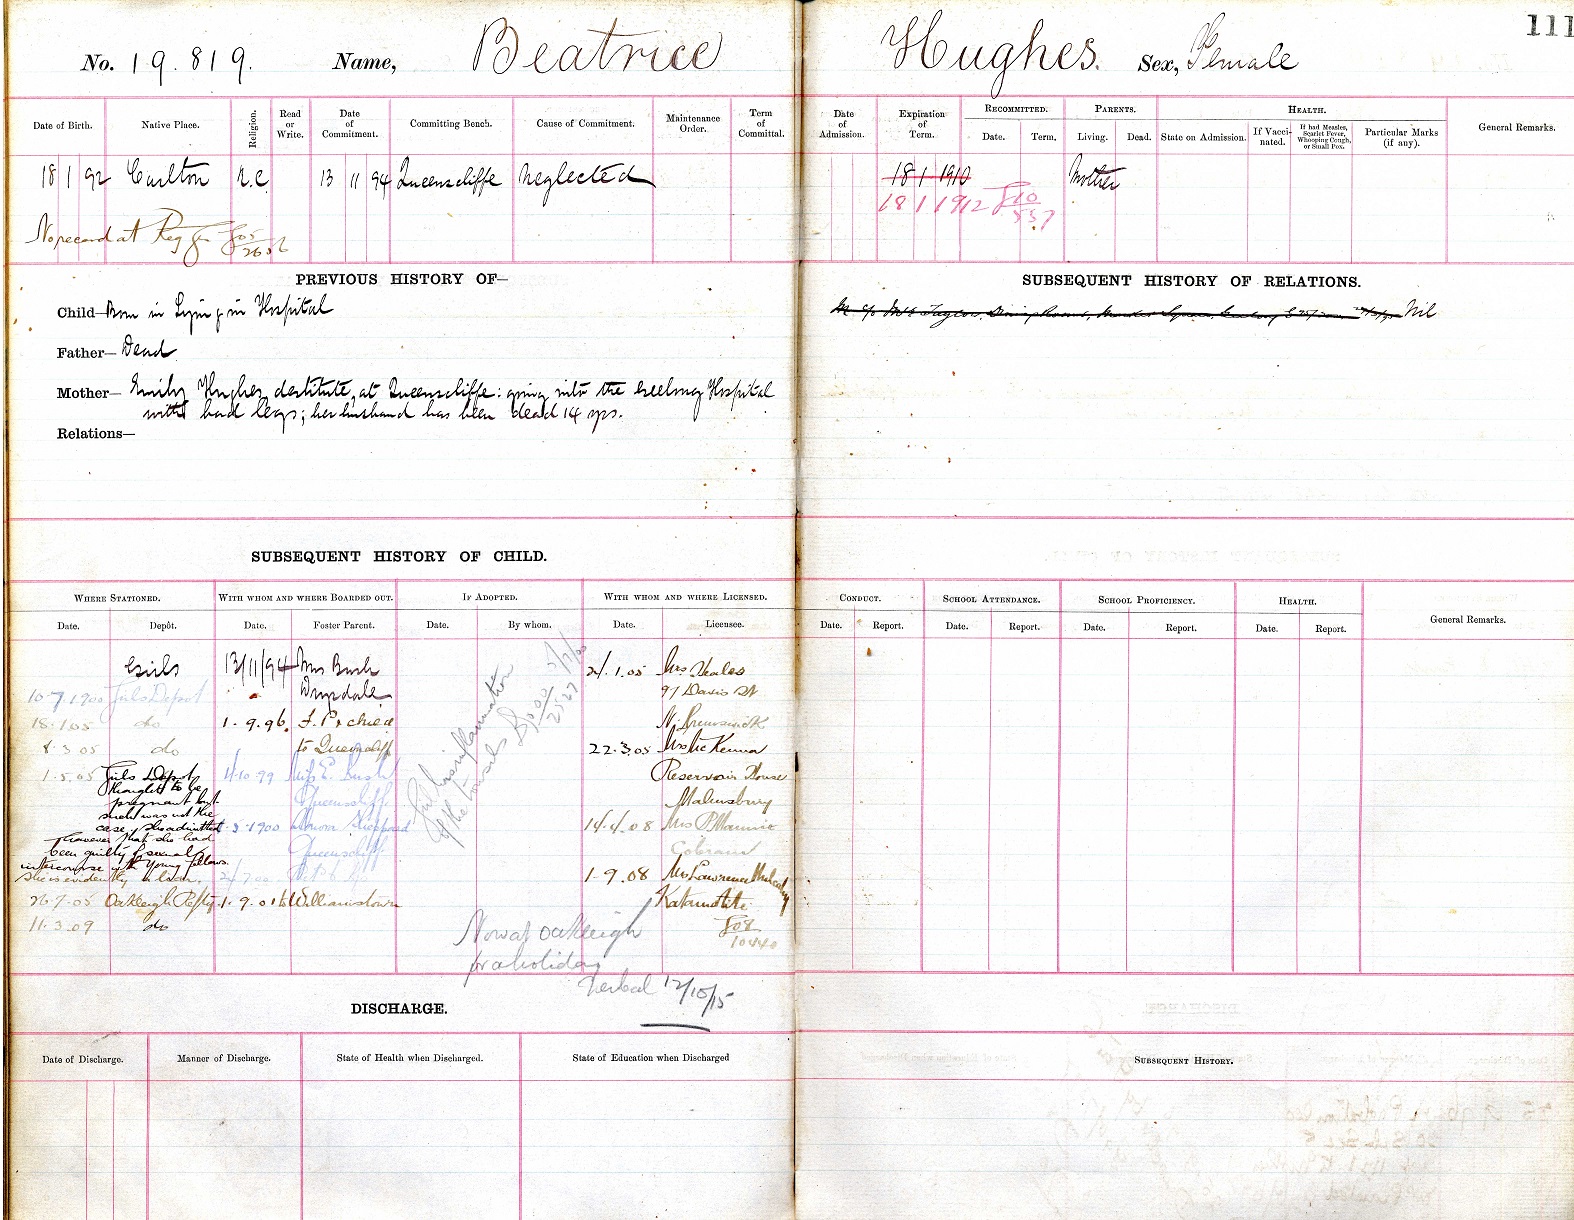 111
No. 19.819. Name, Beatrice Hughes. Sex, Female
Date of Birth. Native Place. Religion. Read or Write. Date of Commitment. Committing Bench. Cause of Commitment. Maintenance Order. Term of Committal.
Date of Admission. Expiration of Term. RECOMMITTED. Date. Term. PARENTS. Living. Dead. HEALTH. State on Admission. If Vaccinated. If had Measles, Scarlet Fever, Whooping Cough, or Small Pox. Particular Marks (if any). General Remarks.
18 1 92 Carlton R.C. 13 11 94 Queenscliffe Neglected 18 1 1910 Mother
18 1 1912 F10/557
No record at Reg Gen F05/2656
PREVIOUS HISTORY OF—
Child— Born in Lying in Hospital
Father— Dead
Mother— Emily Hughes destitute, at Queenscliffe: going into the Geelong Hospital
with bad legs; her husband has been dead 14 yrs.
Relations—
SUBSEQUENT HISTORY OF RELATIONS.
Nil
SUBSEQUENT HISTORY OF CHILD.
WHERE STATIONED. WITH WHOM AND WHERE BOARDED OUT. IF ADOPTED. WITH WHOM AND WHERE LICENSED.
Date. Depôt. Date. Foster Parent. Date. By whom. Date. Licensee.
CONDUCT. SCHOOL ATTENDANCE. SCHOOL PROFICIENCY. HEALTH. General Remarks.
Date. Report. Date. Report. Date. Report. Date. Report.
Girls
10-7-1900 Girls Depot
18.1.05 do
8.3.05 do
1.5.05 Girls Depot
thought to be
pregnant but
such was not the
case, she admitted
however that she had
been guilty of sexual
intercourse with young fellows.
she is evidently a liar.
26.7.05 Oakleigh Refty
11.3.09 do
13/11/94 Mrs Bush
Drysdale
1.9.96.
to Queenscliff
Miss E. Bush
Queenscliff.
1900
Queenscliff
1.9.01 to Williamstown
inflammation
of the tonsils
24.1.05 Mrs Heales
97 Davis St
N. Brunswick
22.3.05 Mrs McKenna
Reservoir House
Malmsbury
14.4.08 Mrs
Cobram
1-9.08 Mrs Lawrence Mulcahy
Katamatite
F08/10440
Now at Oakleigh
for a holiday
Verbal 12/10/15
DISCHARGE.
Date of Discharge. Manner of Discharge. State of Health when Discharged. State of Education when Discharged
SUBSEQUENT HISTORY.